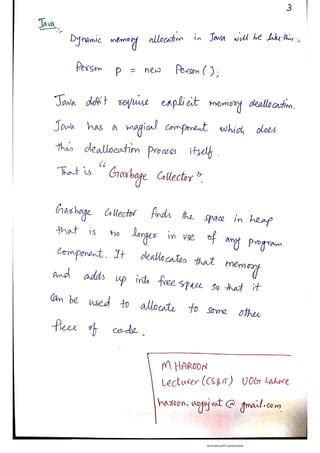 3
Java
Dynamic memory allocation in Java will be like this :-
Person p = new Person();
Java didn't require explicit memory deallocation.
Java has a magical component which does
this deallocation process itself.
That is "Garbage Collector".
Garbage Collector finds the space in heap
that is no longer in use of any program
component. It deallocates that memory
and adds up into free space so that it
can be used to allocate to some other
piece of code.
M. HAROON
Lecturer (CS&IT) UOG Lahore
haroon. @ gmail.com
Scanned with CamScanner